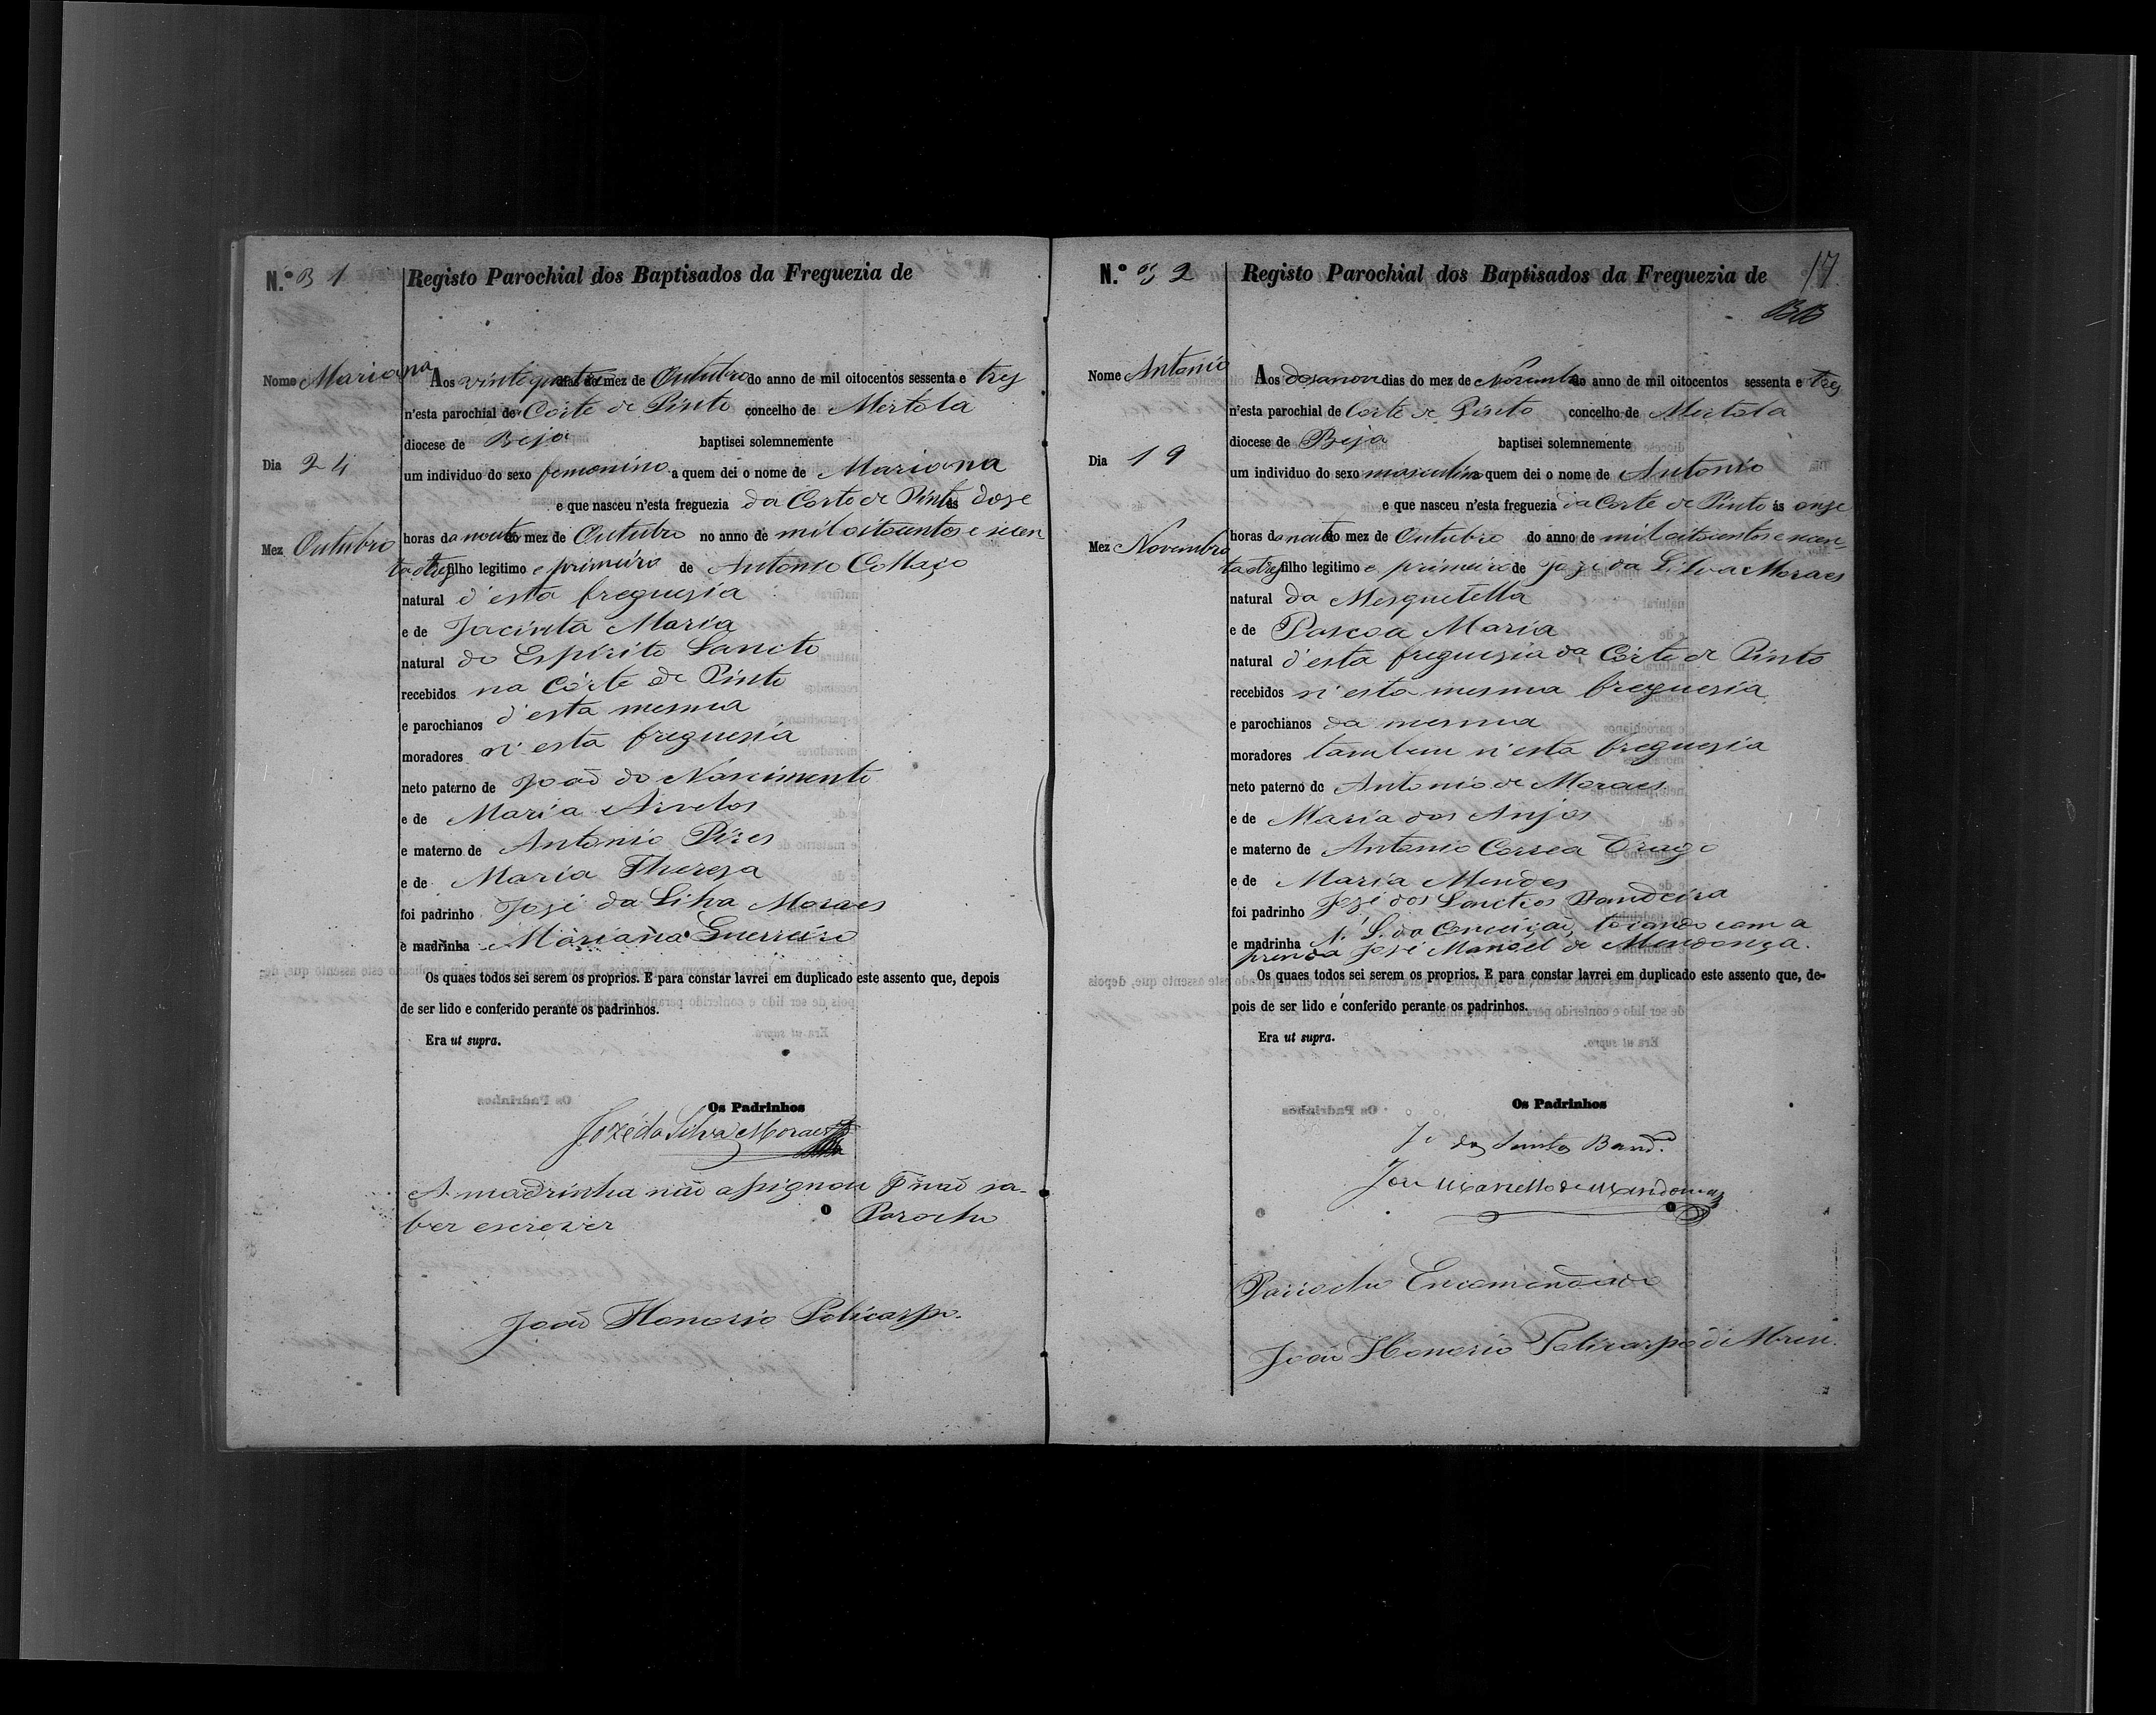 N.º 31
Registo Parochial dos Baptisados da Freguezia de
Nome Mariana
Aos vinte quatro dias do mez de Outubro do anno de mil oitocentos sessenta e tres
n'esta parochial de Córte de Pinto concelho de Mertola
diocese de Beja baptisei solemnemente
Dia 24
um individuo do sexo femenino a quem dei o nome de Mariana
e que nasceu n'esta freguezia da Corte de Pinto ás doze
Mez Outubro
horas da noute do mez de Outubro no anno de mil oitocentos e secen
ta e tres filho legitimo e primeiro de Antonio Collaço
natural d'esta freguesia
e de Jacinta Maria
natural do Espirito Sancto
recebidos na Córte de Pinto
e parochianos d'esta mesma
moradores n'esta freguesia
neto paterno de João do Nascimento
e de Maria
e materno de Antonio Pires
e de Maria Thereza
foi padrinho José da Silva Moraes
e madrinha Mariana Guerreiro
Os quaes todos sei serem os proprios. E para constar lavrei em duplicado este assento que, depois
de ser lido e conferido perante os padrinhos.
Era ut supra.
Os Padrinhos
Jozé da Silva Moraes
A madrinha não assignou p não sa-
ber escrever
O Parocho
João Honorio Policarpo.
N.º 32
Registo Parochial dos Baptisados da Freguezia de
17
Nome Antonio
Aos dosanove dias do mez de Novembro do anno de mil oitocentos sessenta e tres
n'esta parochial de Corte de Pinto concelho de Mertola
diocese de Beja baptisei solemnemente
Dia 19
um individuo do sexo masculino a quem dei o nome de Antonio
e que nasceu n'esta freguezia da Corte de Pinto ás onze
Mez Novembro
horas da noute do mez de Outubro do anno de mil oitocentos e secen-
ta e tres filho legitimo e primeiro de José da Silva Moraes
natural da Mesquitella
e de Pascoa Maria
natural d'esta freguesia da Córte de Pinto
recebidos n'esta mesma freguesia
e parochianos da mesma
moradores tambem n'esta freguesia
neto paterno de Antonio de Moraes
e de Maria dos Anjos
e materno de Antonio Correa Drago
e de Maria Mendes
foi padrinho José dos Sanctos Bandeira
e madrinha N. S. da Conceição, tocando com a
prenda José Manoel de Mendonça.
Os quaes todos sei serem os proprios. E para constar lavrei em duplicado este assento que, de-
pois de ser lido e conferido perante os padrinhos.
Era ut supra.
Os Padrinhos
Je dos Santos Band.ª
José Manoel de Mendonça
O
Parocho Encomendado
João Honorio Policarpo de